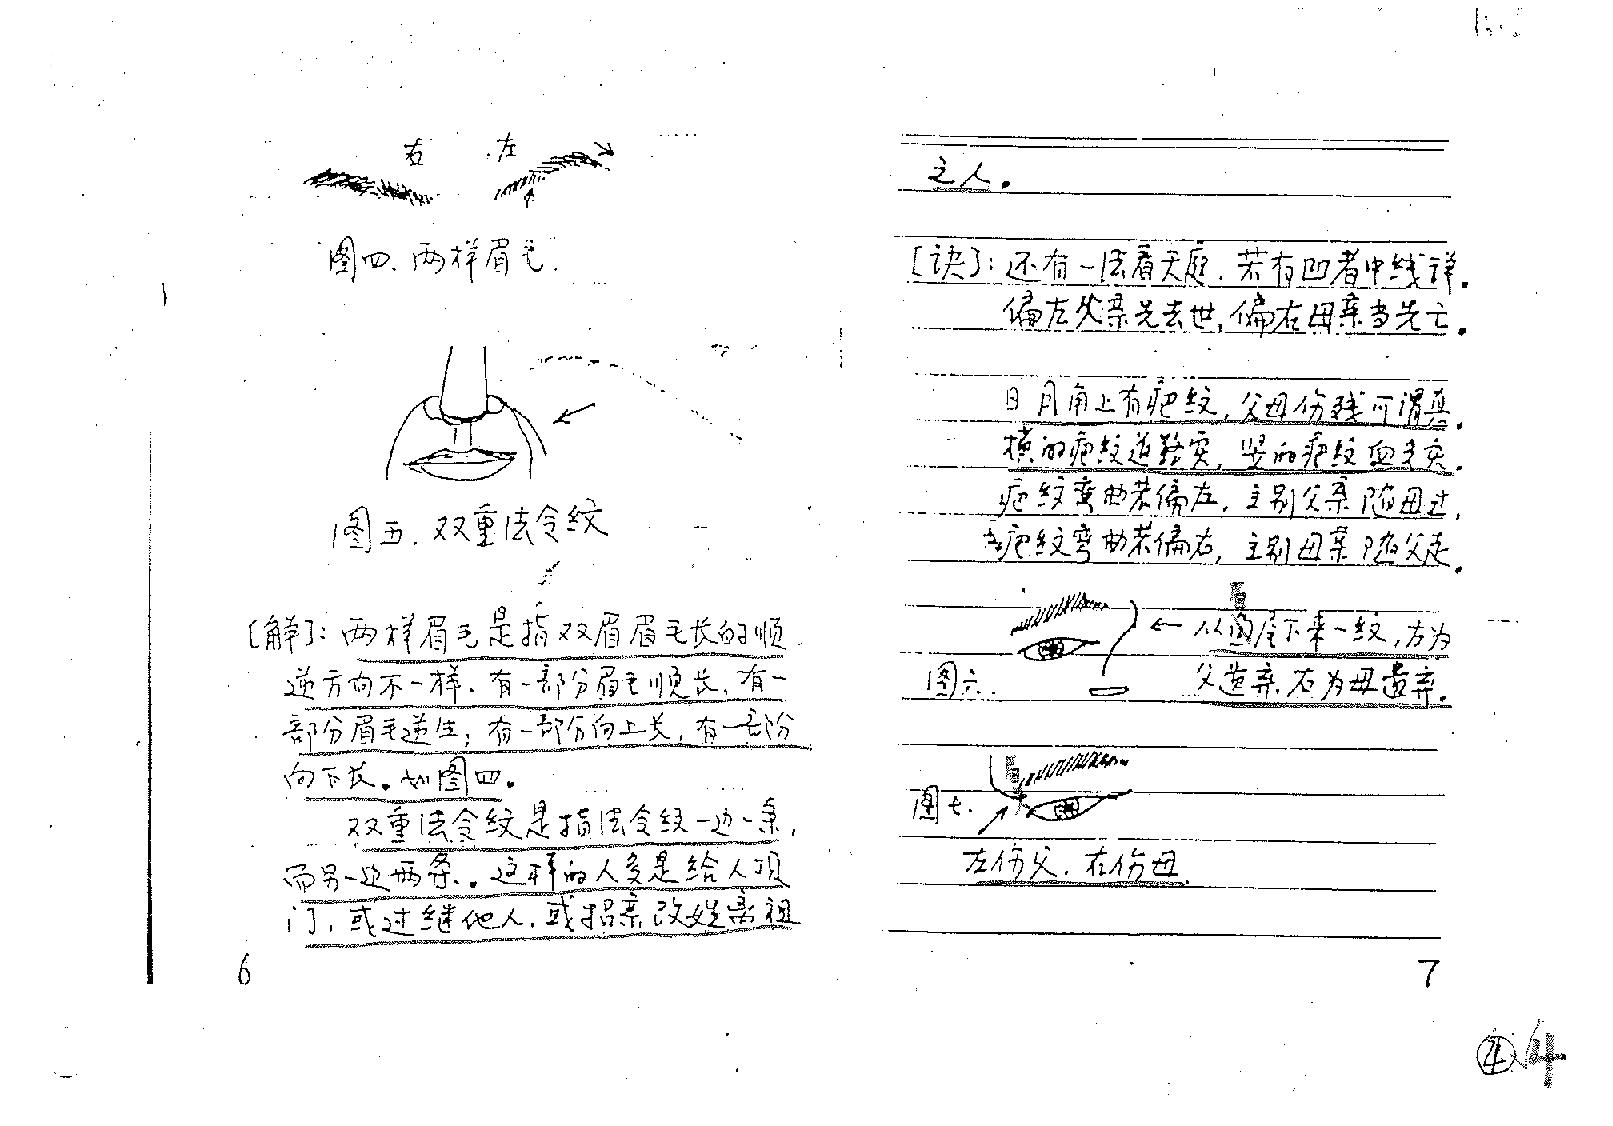 右 左
图四、两样眉毛.
图五.双重法令纹
[解]:两样眉毛是指双眉眉毛长的顺
逆方向不一样.有一部分眉毛顺长,有一
部分眉毛逆生;有一部分向上长,有一部分
向下长.如图四.
双重法令纹是指法令纹一边一条,
而另一边两条.这样的人多是给人顶
门,或过继他人.或招亲改姓离祖
6
之人.
[诀]:还有一法看天庭.若有凹者中线详.
偏左父亲先去世,偏右母亲当先亡.
日月角上有疤纹,父母伤残可谓真.
横的疤纹道路灾,竖的疤纹血光灾.
疤纹弯曲若偏左,主别父亲随母过,
疤纹弯曲若偏右,主别母亲随父走.
从眉尾下来一纹,左为
图六. 父遗弃.右为母遗弃.
图七.
左伤父.右伤母.
7
④ 4